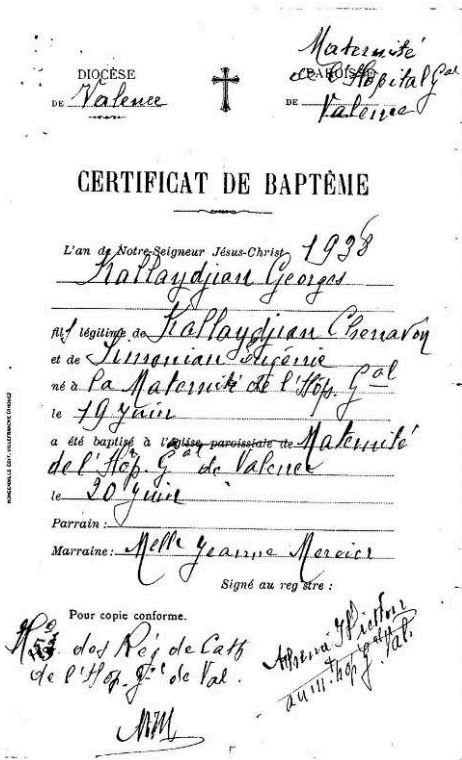 Maternité
DIOCÈSE
PAROISSE
de l'Hôpital Gal
DE Valence
DE Valence
CERTIFICAT DE BAPTÊME
L'an de Notre-Seigneur Jésus-Christ 1938
Kallaydjian Georges
fils légitime de Kallaydjian Chenavon
et de Simonian Eugénie
né à la Maternité de l'Hôp. Gal
le 19 juin
a été baptisé à l'église paroissiale de Maternité
de l'Hôp. Gal de Valence
le 20 juin
Parrain :
Marraine : Melle Jeanne Mercier
Signé au registre :
Pour copie conforme.
des Rég de Cath
de l'Hop. Gal de Val.
hôp Gal Val.